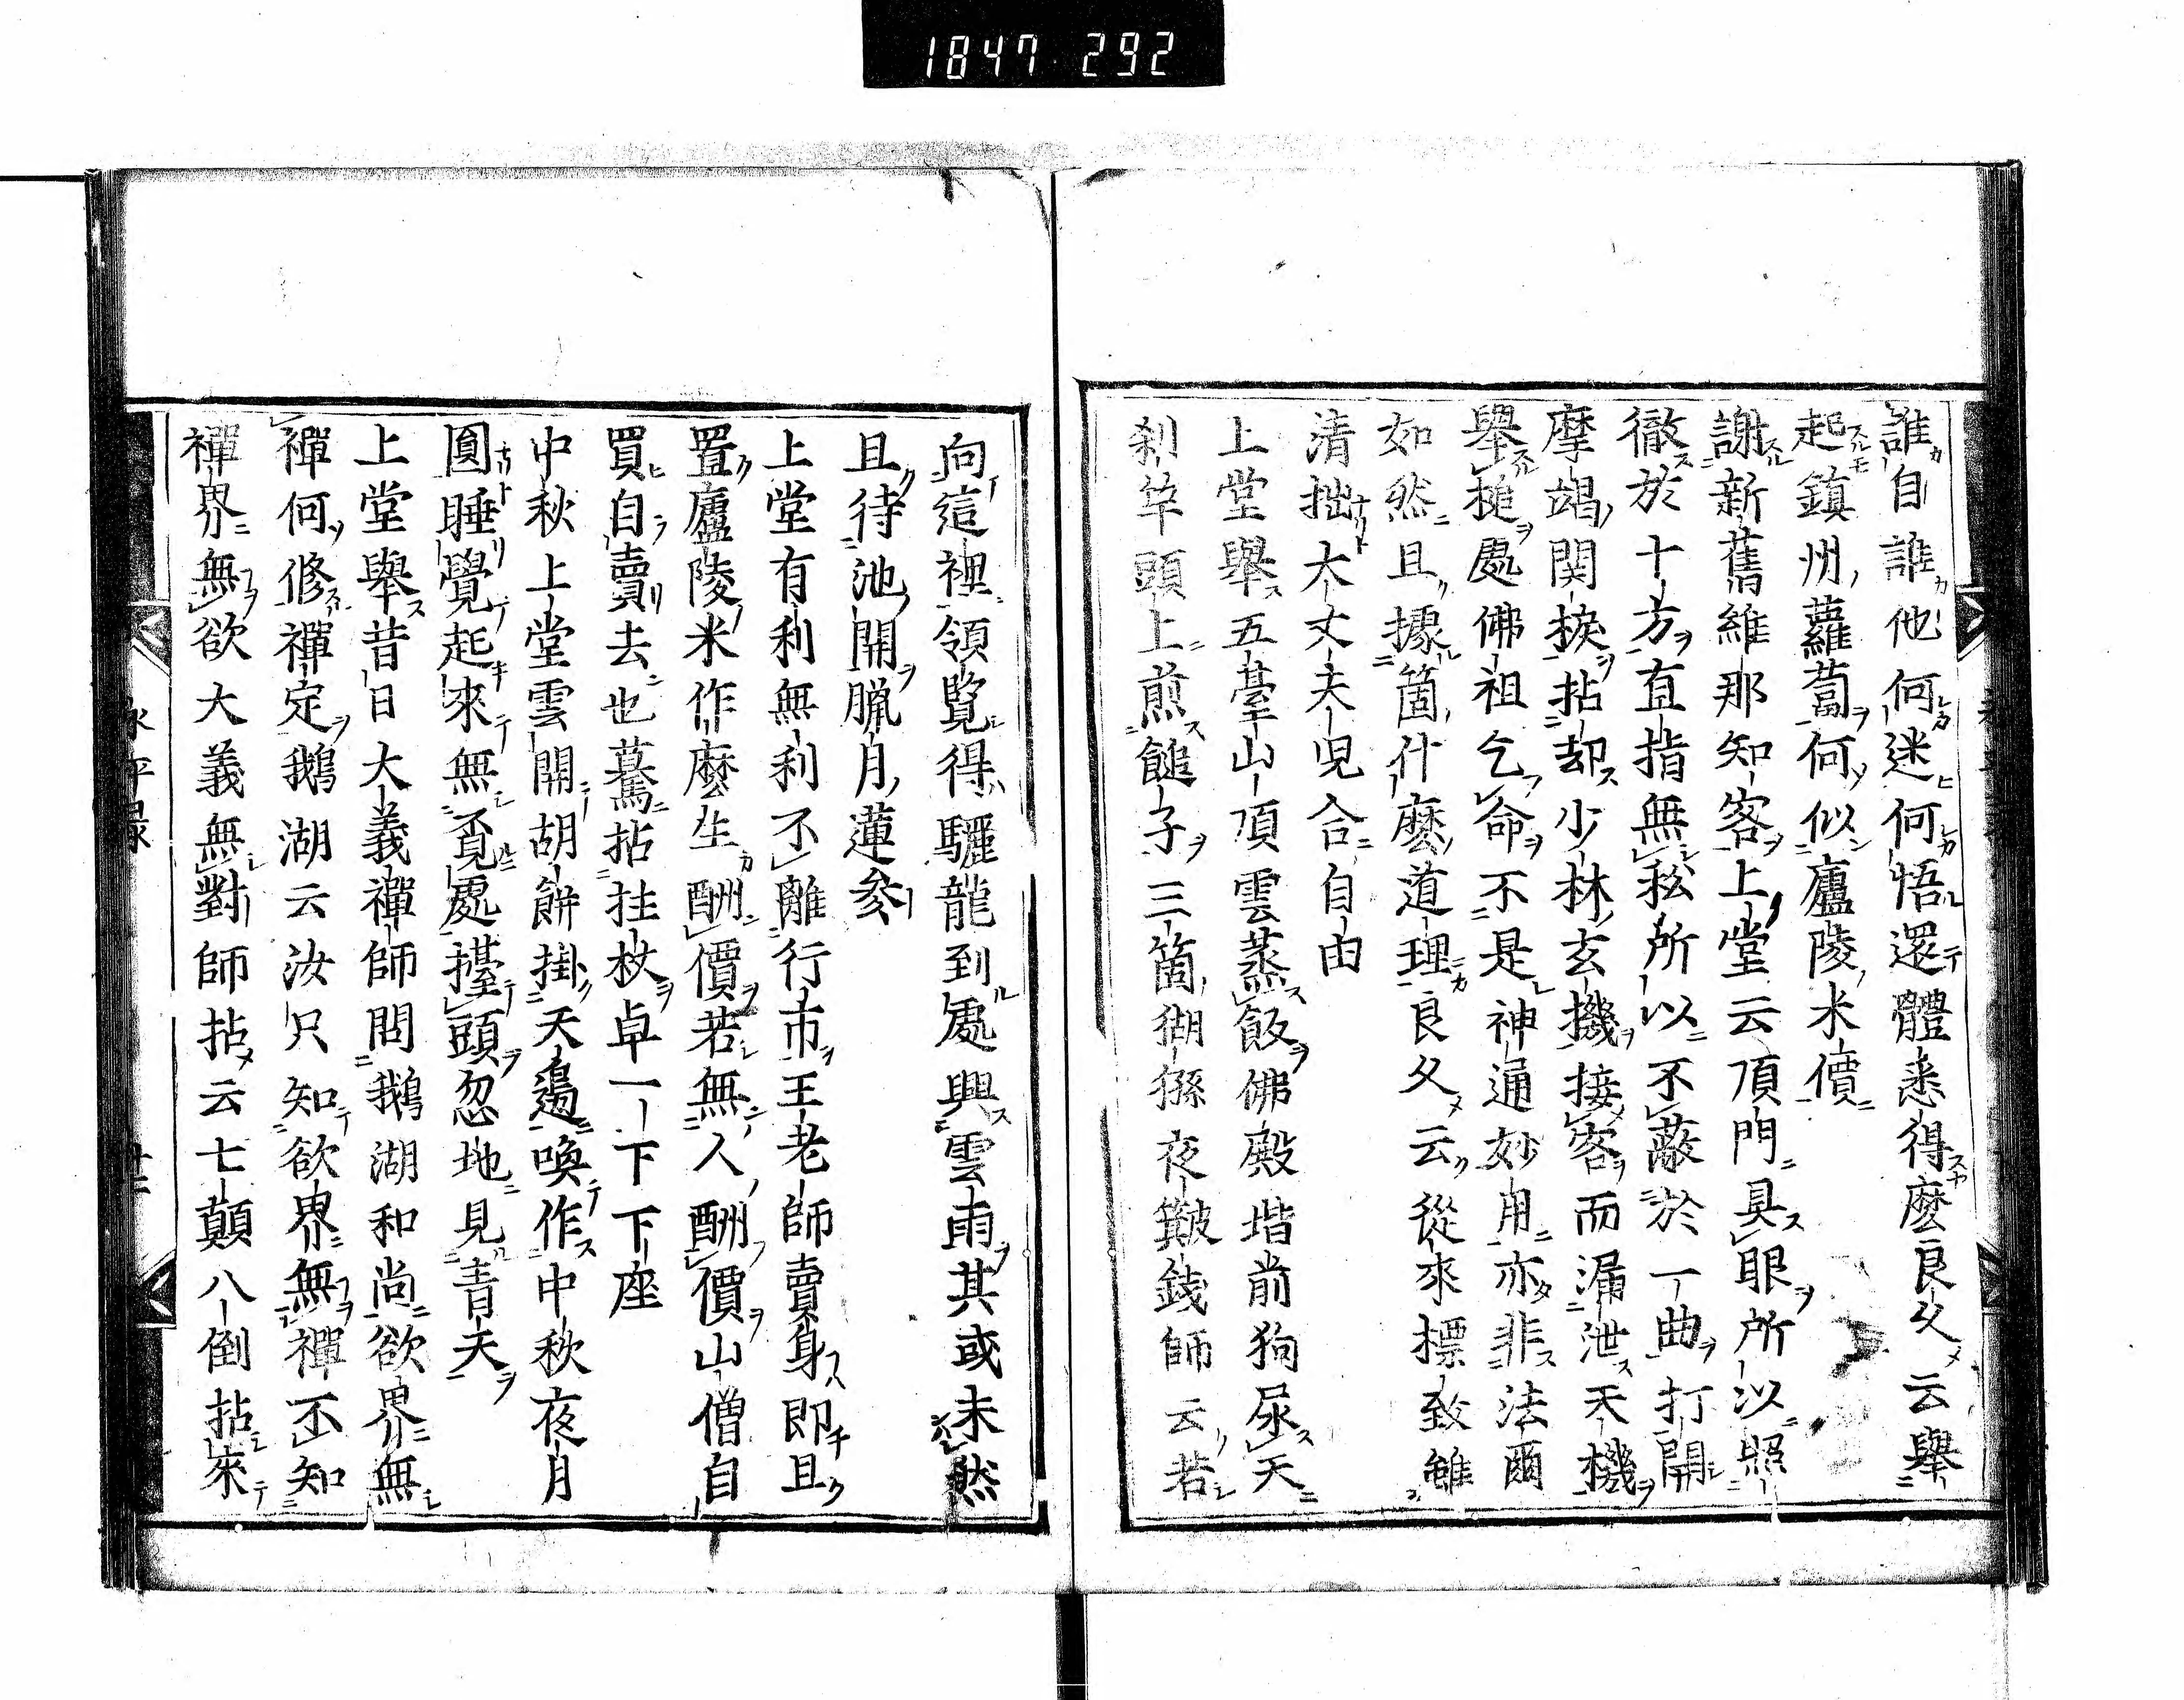 1847 292
誰自誰他何迷何悟還體悉得麼良久云擧
起鎭州蘿蔔何似廬陵米價
謝新舊維那知客上堂云頂門具眼所以照
徹於十方直指無私所以不蔽於一曲打開
摩竭関捩拈却少林玄機接客而漏泄天機
擧槌處佛祖乞命不是神通妙用亦非法爾
如然且據箇什麼道理良久云從來標致雖
清拙大丈夫児合自由
上堂擧五臺山頂雲蒸飯佛殿堦前狗尿天
刹竿頭上煎䭔子三箇猢猻夜簸錢師云若
向這裡領覧得驪龍到處興雲雨其或未然
且待池開臘月蓮参
上堂有利無利不離行市王老師賣身即且
置廬陵米作麼生酬價若無人酬價山僧自
買自賣去也驀拈拄杖卓一下下座
中秋上堂雲開胡餅掛天邊喚作中秋夜月
圓睡覺起來無覓處擡頭忽地見青天
上堂擧昔日大義禪師問鵝湖和尚欲界無
禪何修禪定鵝湖云汝只知欲界無禪不知
禪界無欲大義無對師拈云七顛八倒拈來
永平録